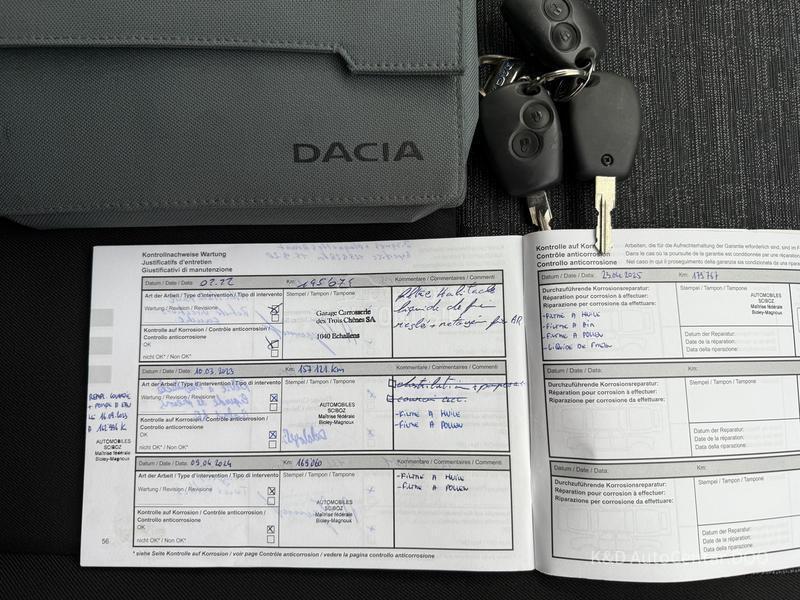 DACIA
Kontrollnachweise Wartung
Justificatifs d'entretien
Giustificativi di manutenzione
Datum / Date / Data: 02.22 Km:
Kommentare / Commentaires / Commenti
Art der Arbeit / Type d'intervention / Tipo di intervento
Stempel / Tampon / Tampone
Wartung / Revision / Revisione
Garage Carrosserie
des Trois Chênes SA
1040 Echallens
Kontrolle auf Korrosion / Contrôle anticorrosion /
Controllo anticorrosione
OK
nicht OK* / Non OK*
filtre Habitacle
liquide de frein
Datum / Date / Data: 10.03.2023 Km: 157121 Km
Kommentare / Commentaires / Commenti
Art der Arbeit / Type d'intervention / Tipo di intervento
Stempel / Tampon / Tampone
Wartung / Revision / Revisione
AUTOMOBILES
SCIBOZ
Maîtrise fédérale
Bioley-Magnoux
Kontrolle auf Korrosion / Contrôle anticorrosion /
Controllo anticorrosione
OK
nicht OK* / Non OK*
-FILTRE A HUILE
-FILTRE A POLLEN
REMPL. COURROIE
+ POMPE D'EAU
AUTOMOBILES
SCIBOZ
Maîtrise fédérale
Bioley-Magnoux
Datum / Date / Data: 09.04.2024 Km: 165060
Kommentare / Commentaires / Commenti
Art der Arbeit / Type d'intervention / Tipo di intervento
Stempel / Tampon / Tampone
Wartung / Revision / Revisione
AUTOMOBILES
SCIBOZ
Maîtrise fédérale
Bioley-Magnoux
Kontrolle auf Korrosion / Contrôle anticorrosion /
Controllo anticorrosione
OK
nicht OK* / Non OK*
-FILTRE A HUILE
-FILTRE A POLLEN
56
* siehe Seite Kontrolle auf Korrosion / voir page Contrôle anticorrosion / vedere la pagina controllo anticorrosione
Kontrolle auf
Contrôle
Controllo anticorrosione
Arbeiten, die für die Aufrechterhaltung der Garantie erforderlich sind, sind in
Dans le cas où la poursuite de la garantie est conditionnée par une réparation
Nel caso in cui il proseguimento della garanzia sia condizionato da una ripara
Datum / Date / Data: 23.04.2025 Km: 173767
Durchzuführende Korrosionsreparatur:
Réparation pour corrosion à effectuer:
Riparazione per corrosione da effettuare:
Stempel / Tampon / Tampone
AUTOMOBILES
SCIBOZ
Maîtrise fédérale
Bioley-Magnoux
-FILTRE A HUILE
-FILTRE A AIR
-FILTRE A POLLEN
-LIQUIDE DE FREIN
Datum der Reparatur:
Date de la réparation:
Data della riparazione:
Datum / Date / Data: Km:
Durchzuführende Korrosionsreparatur:
Réparation pour corrosion à effectuer:
Riparazione per corrosione da effettuare:
Stempel / Tampon / Tampone
Datum der Reparatur:
Date de la réparation:
Data della riparazione:
Datum / Date / Data: Km:
Durchzuführende Korrosionsreparatur:
Réparation pour corrosion à effectuer:
Riparazione per corrosione da effettuare:
Stempel / Tampon / Tampone
Datum der Reparatur:
Date de la réparation:
Data della riparazione:
K&D AutoCenter OOO